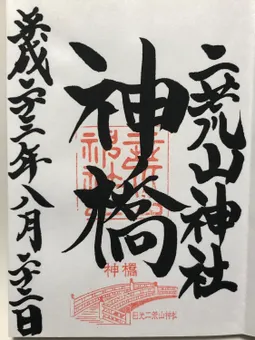 二荒山神社
神橋
平成二十三年八月二十二日
神橋
日光二荒山神社